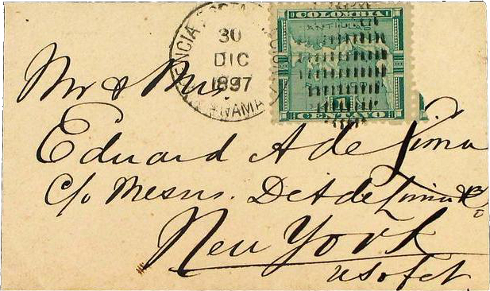 AGENCIA POSTAL NACIONAL
30
DIC
1897
PANAMA
COLOMBIA
1
CENTAVO
Mr & Mrs
Eduard A de Lima
c/o Messrs. D A de Lima & Co
New York
U S of A